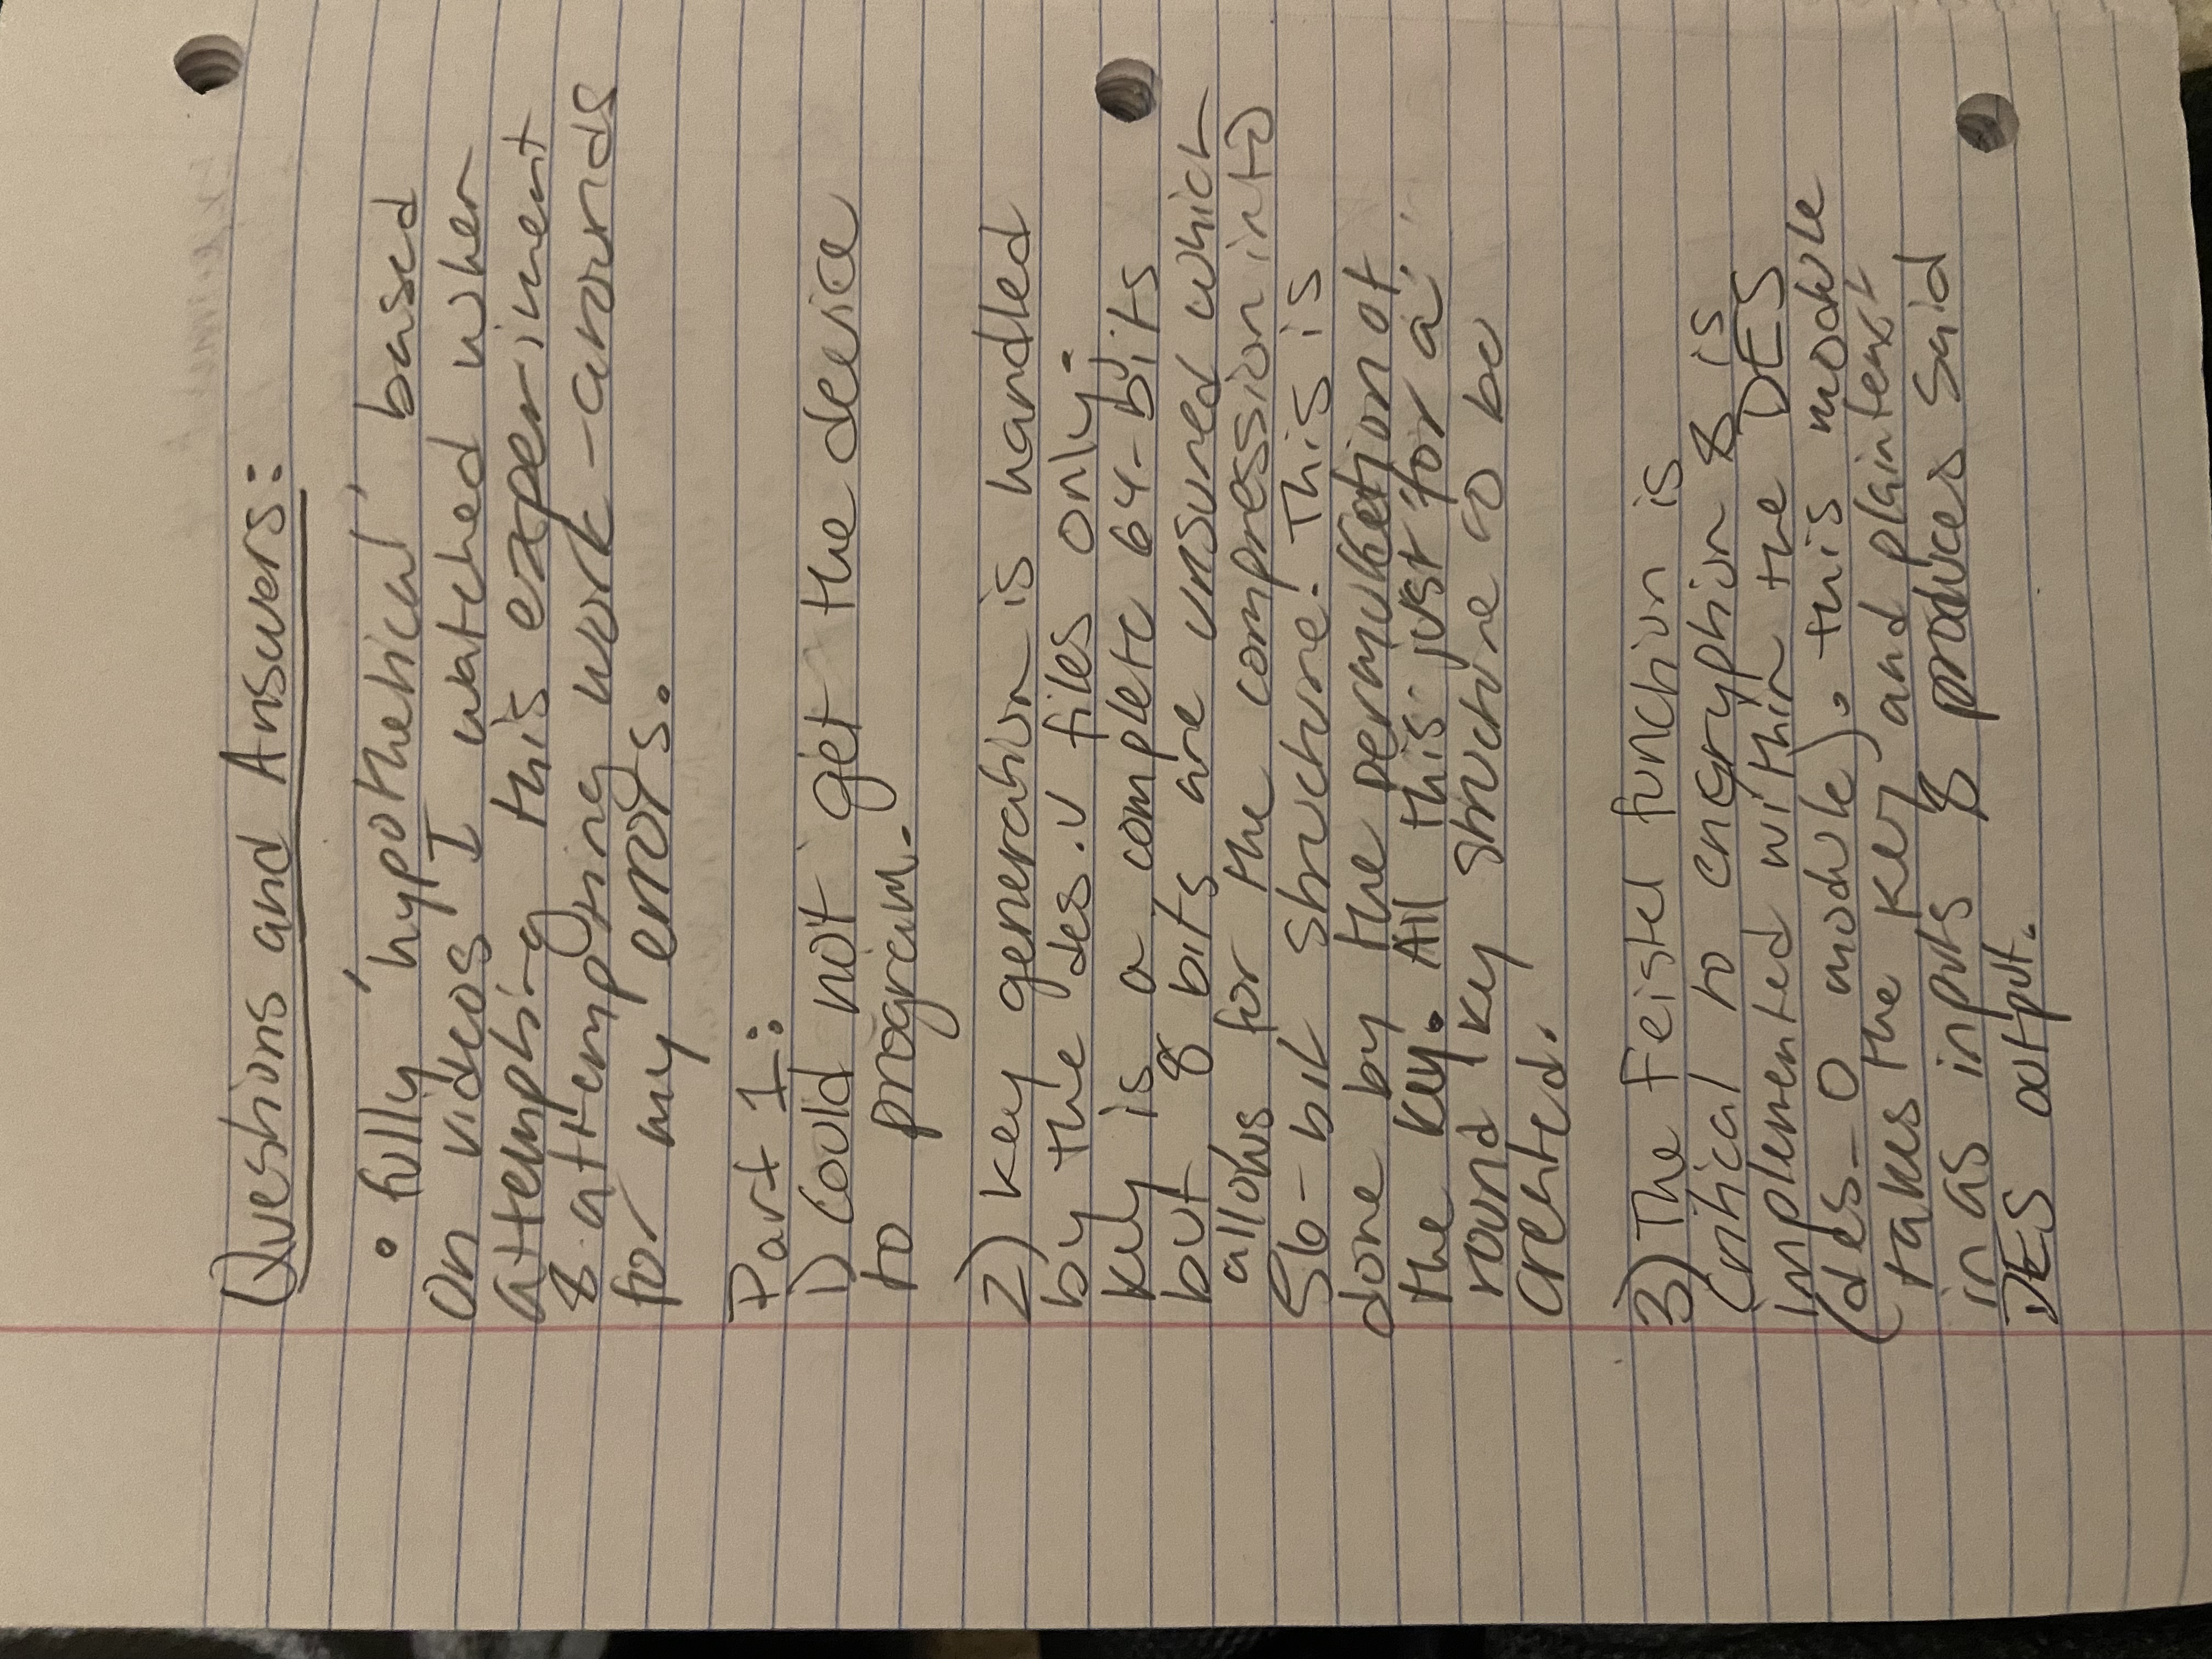 Questions and Answers:
• fully 'hypothetical' based
on videos I watched when
attempting this experiment
& attempting work-arounds
for my errors.
Part 1:
1) Could not get the device
to program.
2) Key generation is handled
by the des.v files only;
key is a complete 64-bits
but 8 bits are unsured which
allows for the compression into
56-bit structure. This is
done by the permutation of
the key. All this just for a
round key structure to be
created.
3) The Feistel function is
critical to encryption & is
implemented within the DES
(des_0 module). this module
takes the key and plaintext
in as inputs & produces said
DES output.